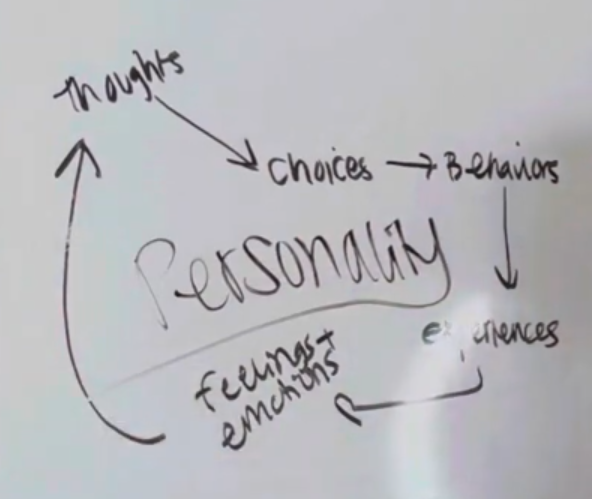 Thoughts
Choices → Behaviors
Personality
experiences
feelings +
emotions